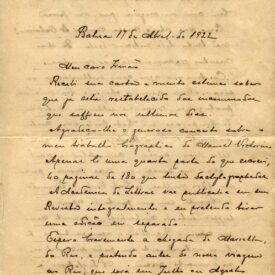 Bahia 17 de Abril de 1922
Meu caro Irmão
Recebi sua carta e muito estimei saber
que ja está restabelecido dos incommodos
que soffreu nos ultimos dias
Agradeço-lhe o generoso conceito sobre o
meu trabalho biographico de Manoel Victorino.
Apenas li uma quarta parte do que escrevi,
60 paginas de 180 que tenho dactylographadas.
A Academia de Letras vae publical-o em sua
Revista integralmente e eu pretendo tirar
uma edição em separado.
Espero brevemente a chegada de
do Rio, e pretendo antes de nossa viagem
ao Rio, que será em Julho ou Agosto